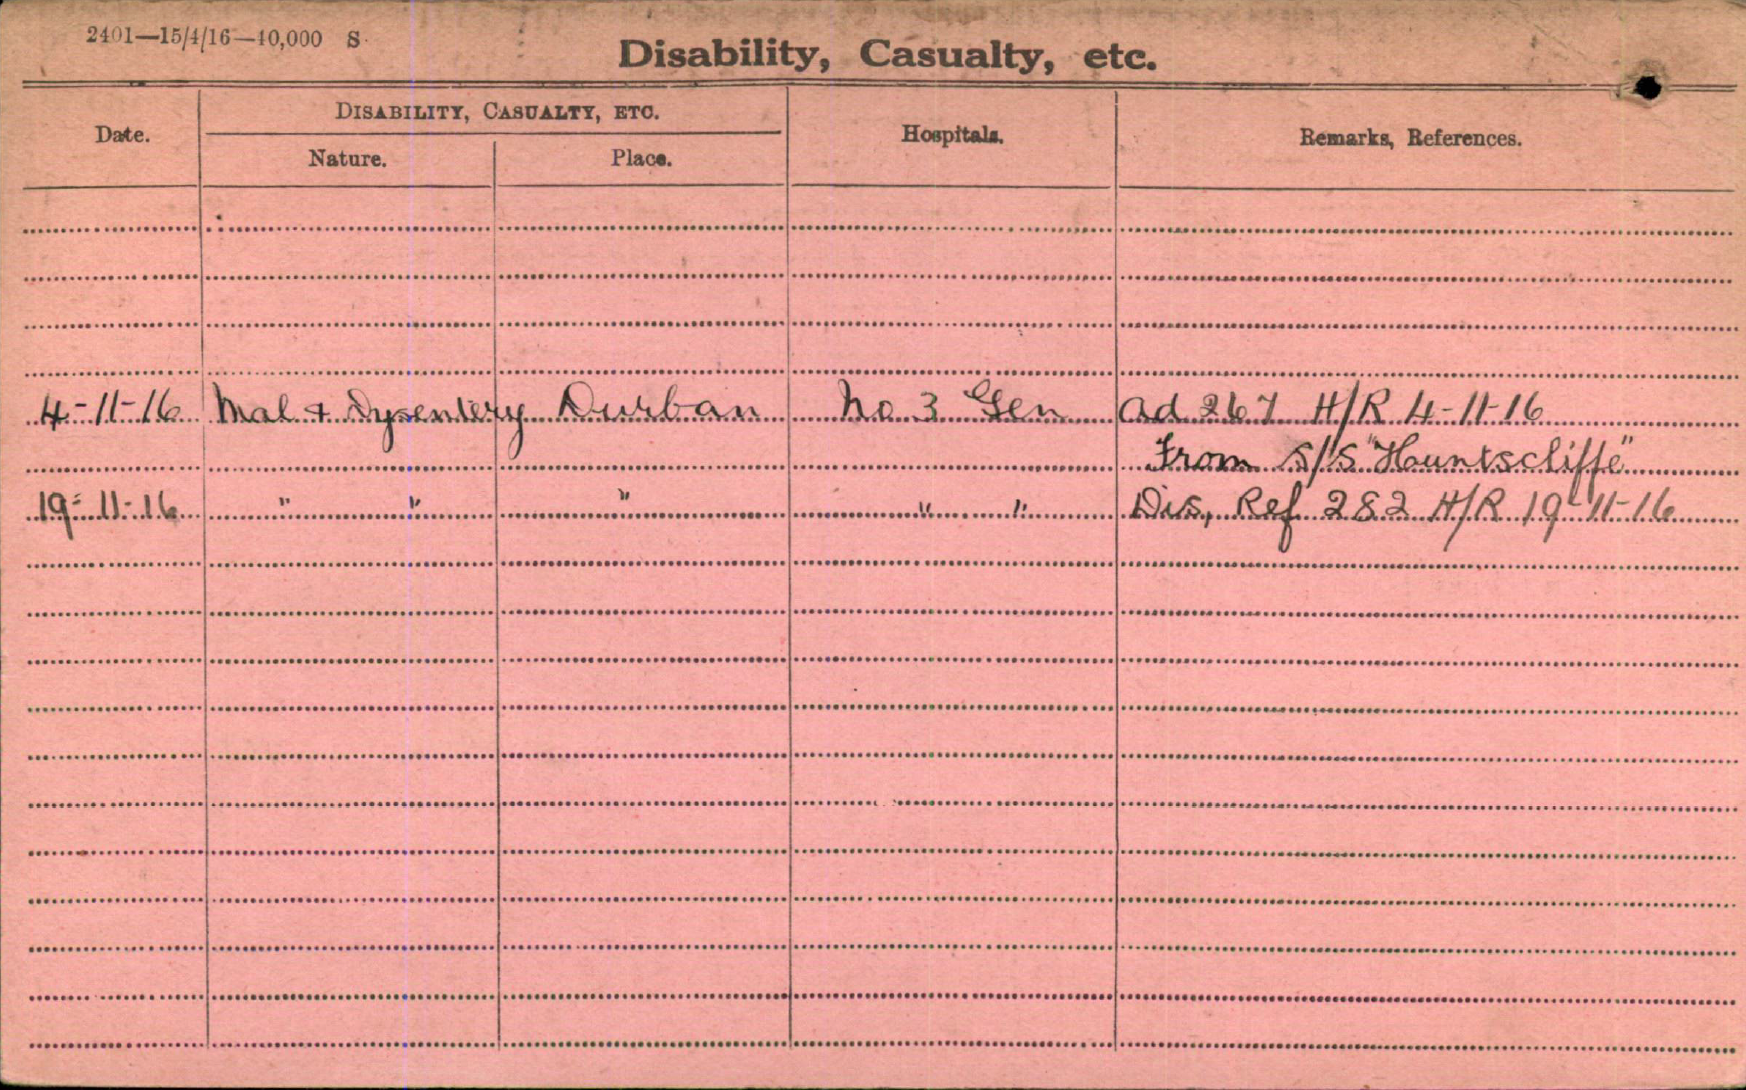 2401—15/4/16—40,000 S
Disability, Casualty, etc.
Date.
DISABILITY, CASUALTY, ETC.
Nature.
Place.
Hospitals.
Remarks, References.
4-11-16 Mal + Dysentery Durban No 3 Gen Ad 267 H/R 4-11-16
From S/S "Huntscliffe"
19-11-16 " " " " " Dis, Ref 282 H/R 19-11-16